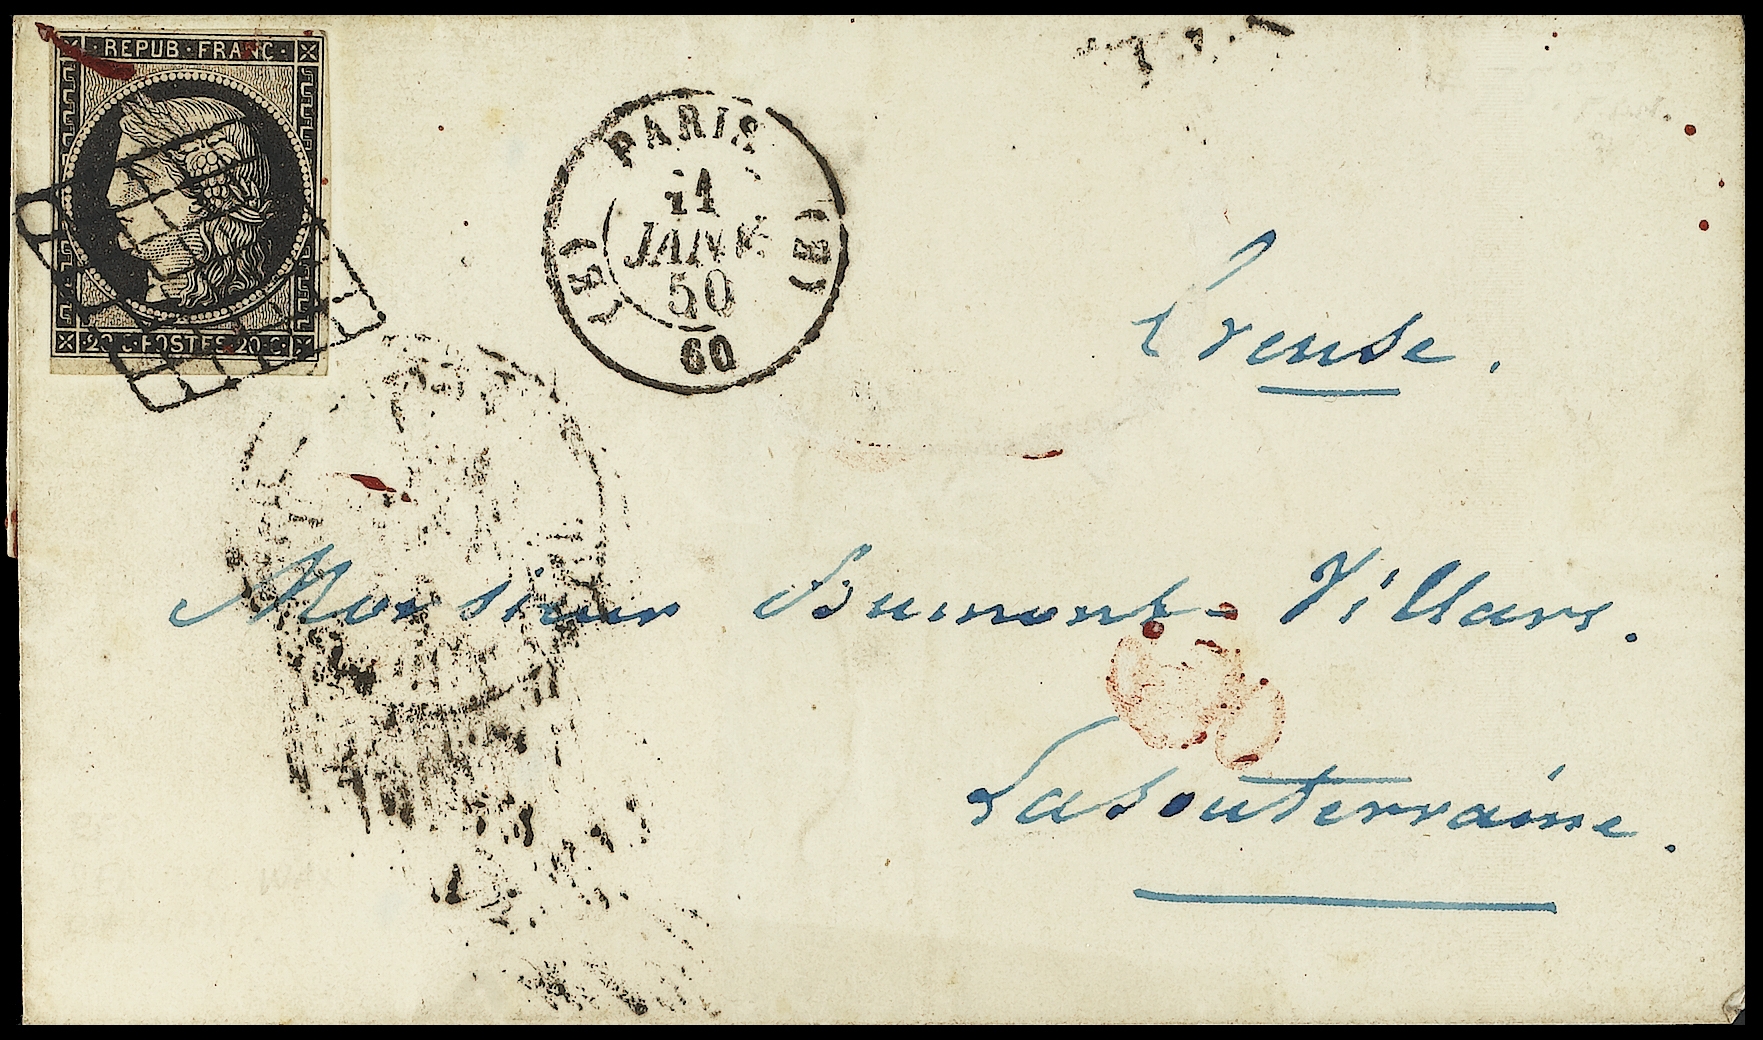 · REPUB · FRANC ·
20 C · POSTES · 20 C ·
PARIS
(E) (E)
11
JANV
50
60
Creuse.
Monsieur Dumont-Villars.
Lasouterraine.